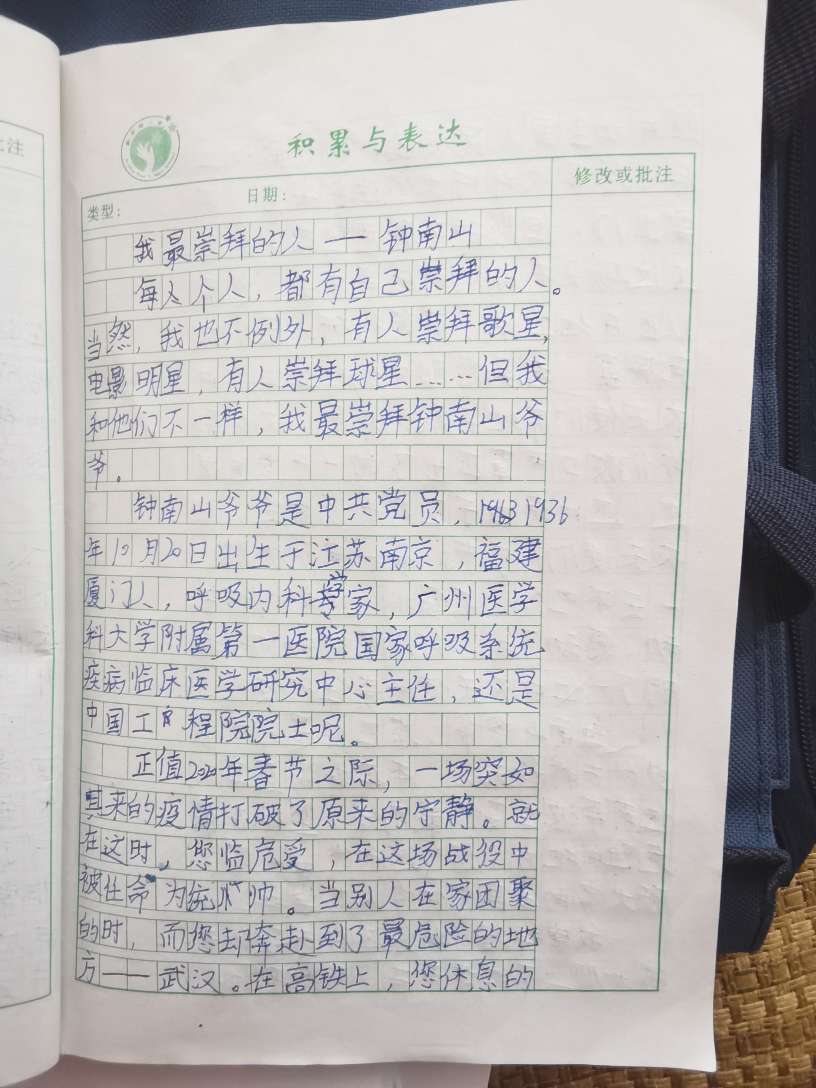 注
积累与表达
类型：
日期：
修改或批注
我最崇拜的人——钟南山
每个人，都有自己崇拜的人。
当然，我也不例外，有人崇拜歌星，
电影明星，有人崇拜球星……但我
和他们不一样，我最崇拜钟南山爷
爷。
钟南山爷爷是中共党员，1936
年10月20日出生于江苏南京，福建
厦门人，呼吸内科学家，广州医学
科大学附属第一医院国家呼吸系统
疾病临床医学研究中心主任，还是
中国工程院院士呢。
正值2020年春节之际，一场突如
其来的疫情打破了原来的宁静。就
在这时，您监危受，在这场战役中
被任命为统帅。当别人在家团聚
的时，而您去奔赴到了最危险的地
方——武汉。在高铁上，您休息的